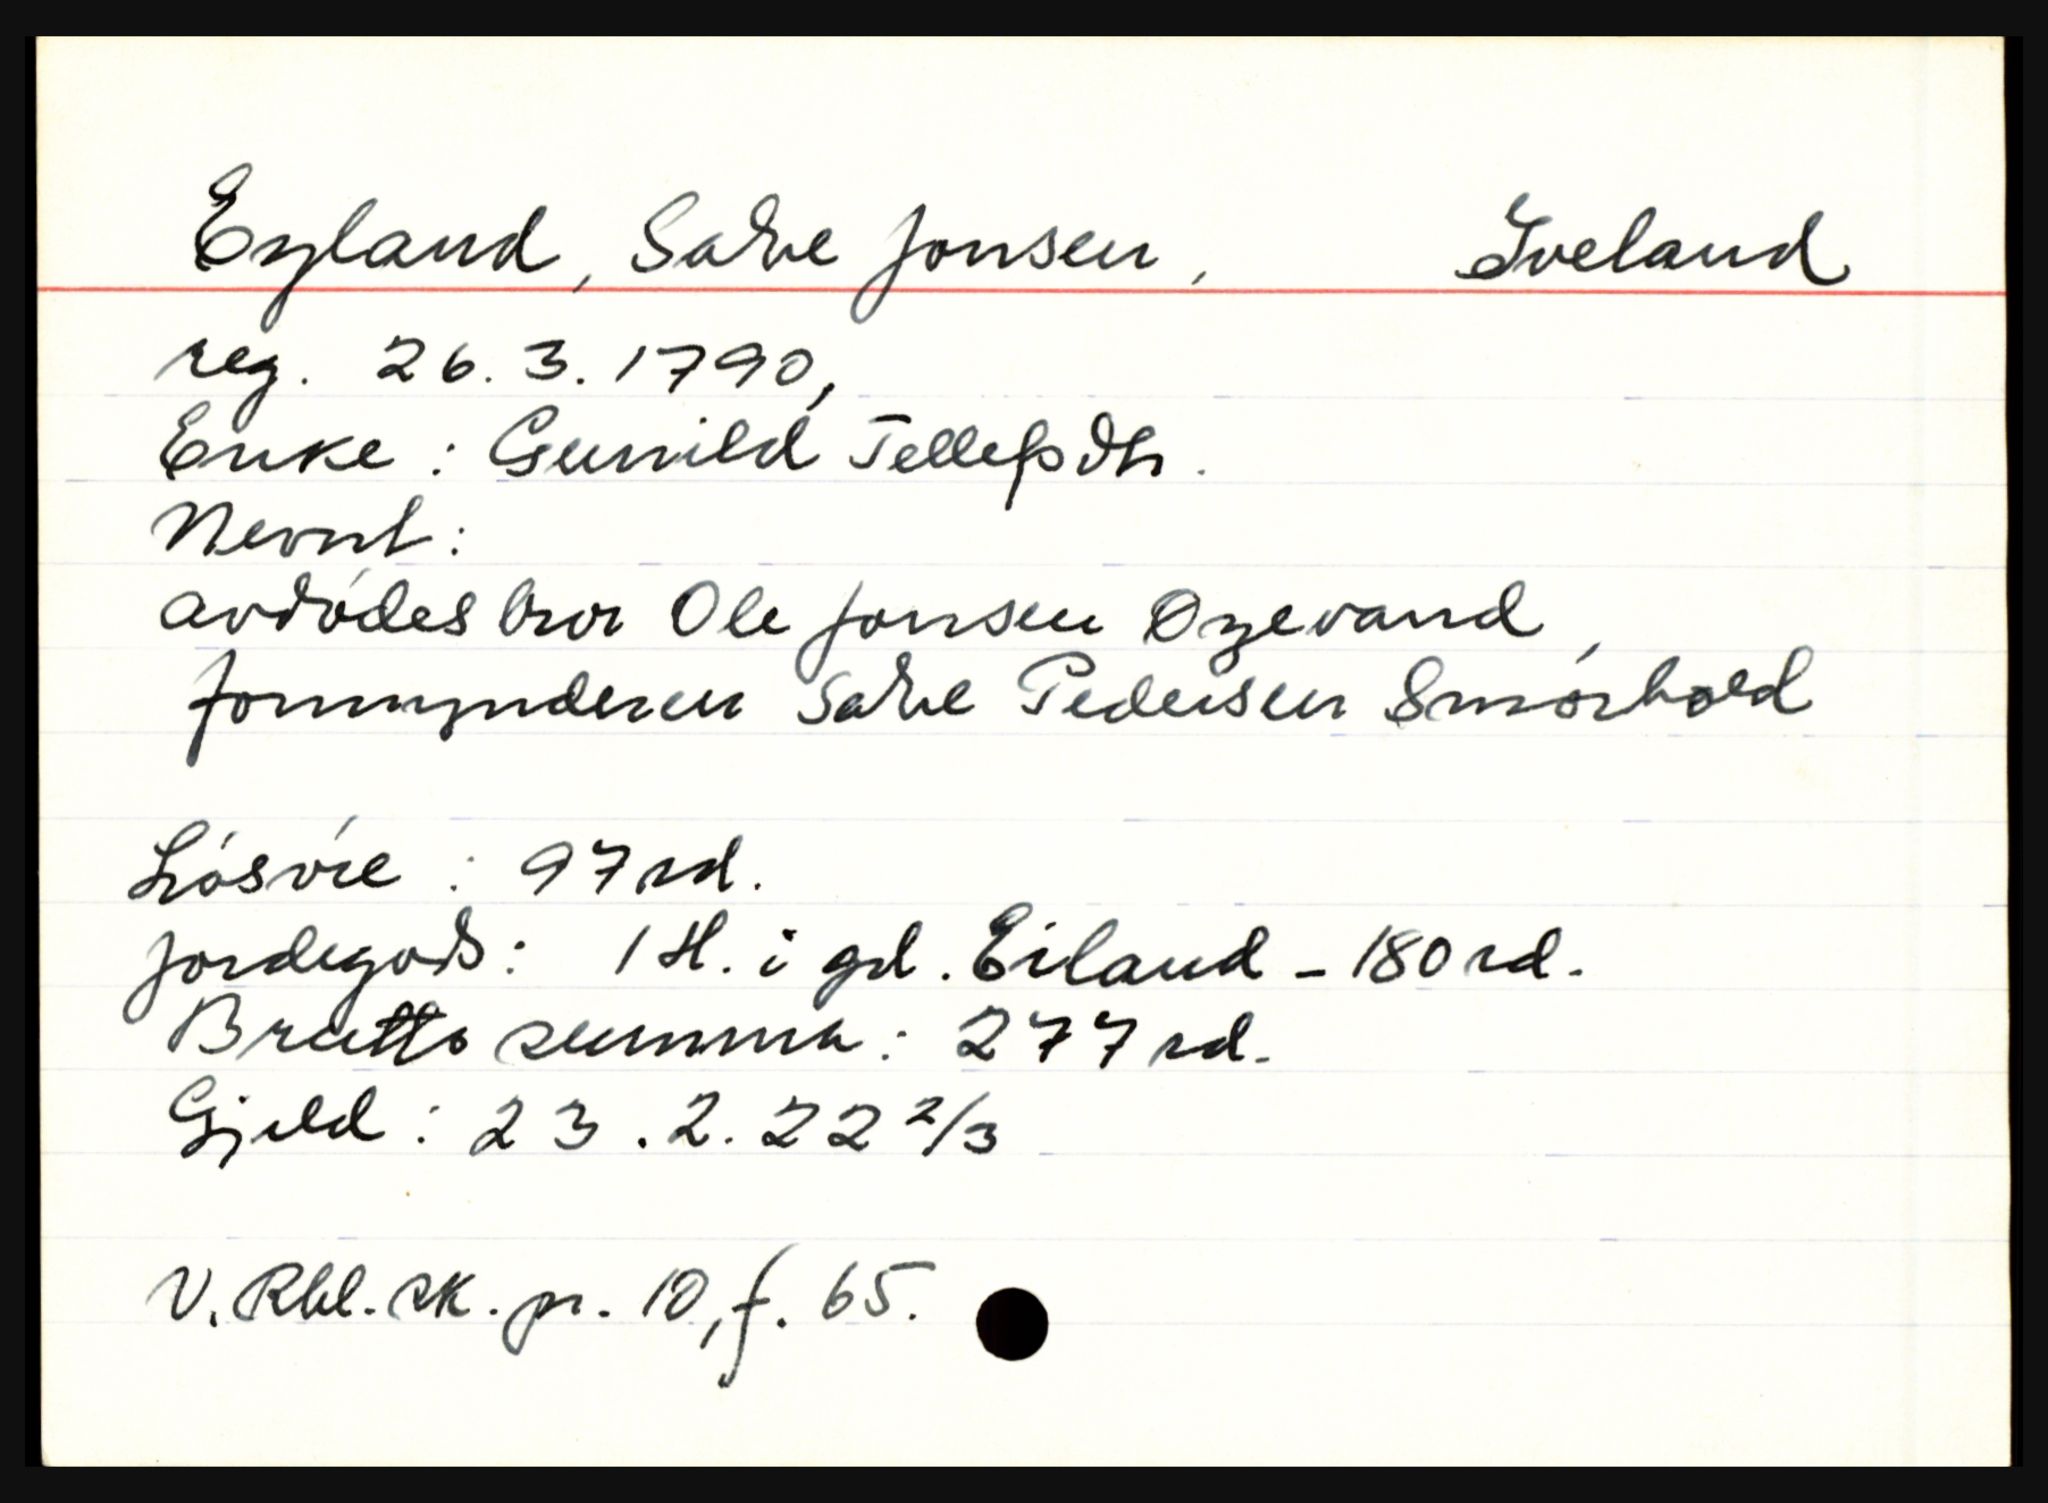 Eyland, Salve Jonsen, Iveland
reg. 26.3.1790,
Enke: Gunild Tellefsdtr.
Nevnt:
avdødes bror Ole Jonsen Ogevand,
formynderen Salve Pedersen Smørhold
Løsøre: 97 rd.
Jordegods: 1 H. i gd. Eiland - 180 rd.
Brutto summa: 277 rd.
Gjeld: 23.2.22 2/3
V. Rbl. sk. pr. 10, f. 65.